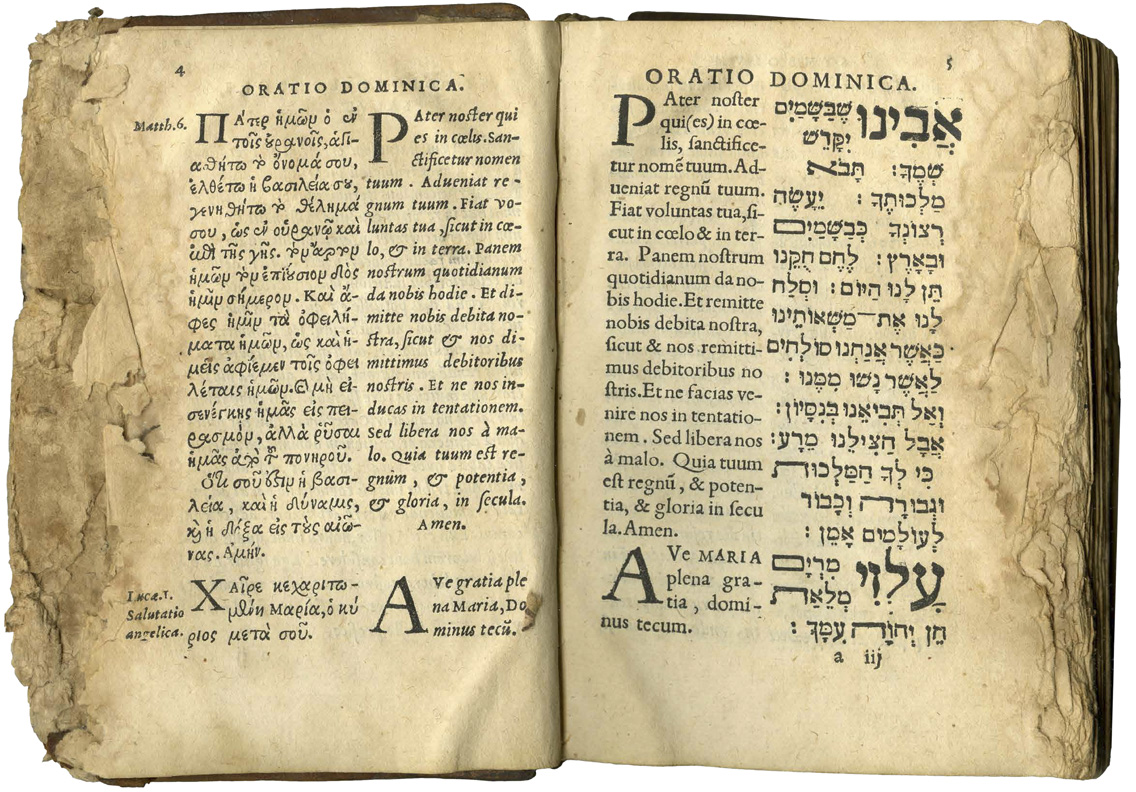 4
ORATIO DOMINICA.
Matth.6.
ΠΑτερ ἡμῶν ὁ ἐν
τοῖς οὐρανοῖς, ἁγι-
αϑήτω τὸ ὄνομά σου,
ἐλθέτω ἡ βασιλεία σου,
γενηϑήτω τὸ ϑέλημά
σου, ὡς ἐν οὐρανῷ καὶ
ἐπὶ τῆς γῆς. τὸν ἄρτον
ἡμῶν τὸν ἐπιούσιον δὸς
ἡμῖν σήμερον. Καὶ ἄ-
φες ἡμῖν τὰ ὀφειλή-
ματα ἡμῶν, ὡς καὶ ἡ-
μεῖς ἀφίεμεν τοῖς ὀφει
λέταις ἡμῶν. Καὶ μὴ εἰ-
σενέγκῃς ἡμᾶς εἰς πει-
ρασμὸν, ἀλλὰ ῥῦσαι
ἡμᾶς ἀπὸ τοῦ πονηροῦ.
Ὅτι σοῦ ἐστιν ἡ βασι-
λεία, καὶ ἡ δύναμις,
καὶ ἡ δόξα εἰς τοὺς αἰῶ-
νας. Ἀμήν.
Lucæ.1.
Salutatio
angelica.
ΧΑῖρε κεχαριτω-
μένη Μαρία, ὁ κύ
ριος μετὰ σοῦ.
PAter noſter qui
es in cœlis. San-
ctificetur nomen
tuum. Adueniat re-
gnum tuum. Fiat vo-
luntas tua, ſicut in cœ-
lo, & in terra. Panem
noſtrum quotidianum
da nobis hodie. Et di-
mitte nobis debita no-
ſtra, ſicut & nos di-
mittimus debitoribus
noſtris. Et ne nos in-
ducas in tentationem.
Sed libera nos à ma-
lo. Quia tuum eſt re-
gnum, & potentia,
& gloria, in ſecula.
Amen.
AVe gratia ple
na Maria, Do
minus tecũ.
5
ORATIO DOMINICA.
PAter noſter
qui(es) in cœ-
lis, ſanctifice-
tur nomẽ tuum. Ad-
ueniat regnũ tuum.
Fiat voluntas tua, ſi-
cut in cœlo & in ter-
ra. Panem noſtrum
quotidianum da no-
bis hodie. Et remitte
nobis debita noſtra,
ſicut & nos remitti-
mus debitoribus no
ſtris. Et ne facias ve-
nire nos in tentatio-
nem. Sed libera nos
à malo. Quia tuum
eſt regnũ, & poten-
tia, & gloria in ſecu
la. Amen.
AVe MARIA
plena gra-
tia, domi-
nus tecum.
אֲבִינוּ שֶׁבַּשָּׁמַיִם
יִקָּדֵשׁ
שְׁמֶךָ: תָּבֹא
מַלְכוּתֶךָ: יֵעָשֶׂה
רְצוֹנְךָ כְּבַשָּׁמַיִם
וּבָאָרֶץ: לֶחֶם חֻקֵּנוּ
תֵּן לָנוּ הַיּוֹם: וּסְלַח
לָנוּ אֶת־מַשְּׁאוֹתֵינוּ
כַּאֲשֶׁר אֲנַחְנוּ סוֹלְחִים
לַאֲשֶׁר נָשׁוּ מִמֶּנּוּ:
וְאַל תְּבִיאֵנוּ בְּנִסָּיוֹן:
אֲבָל הַצִּילֵנוּ מֵרָע:
כִּי לְךָ הַמַּלְכוּת
וּגְבוּרָה וְכָבוֹד
לְעוֹלָמִים אָמֵן:
עָלְזִי מִרְיָם
מְלֵאַת
חֵן יְהוָֹה עִמָּךְ:
a iij